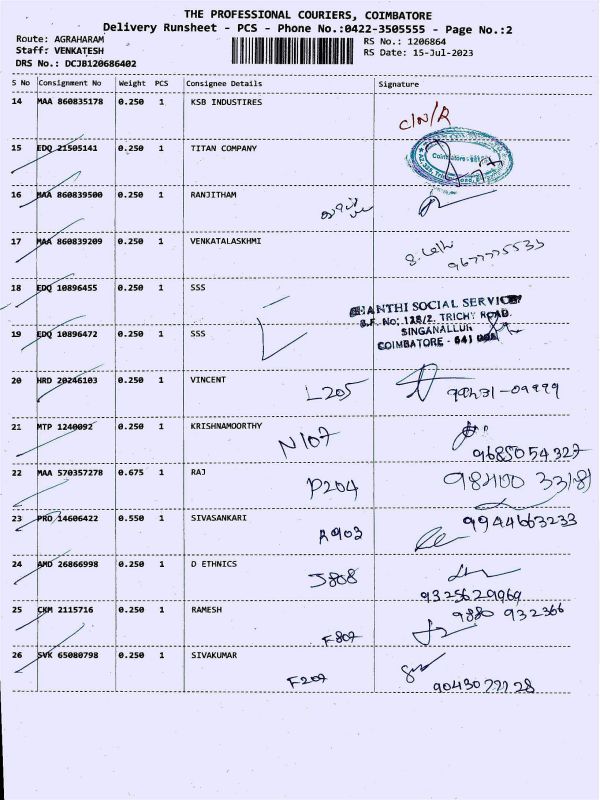 THE PROFESSIONAL COURIERS, COIMBATORE
Delivery Runsheet - PCS - Phone No.:0422-3505555 - Page No.:2
Route: AGRAHARAM
RS No.: 1206864
Staff: VENKATESH
RS Date: 15-Jul-2023
DRS No.: DCJB120686402
S No Consignment No Weight PCS Consignee Details Signature
14 MAA 860835178 0.250 1 KSB INDUSTIRES
C/N/R
15 EDQ 21505141 0.250 1 TITAN COMPANY
Coimbatore
16 MAA 860839500 0.250 1 RANJITHAM
17 MAA 860839209 0.250 1 VENKATALASKHMI
18 EDQ 10896455 0.250 1 SSS
SHANTHI SOCIAL SERVICE
S.F. No: 128/2, TRICHY ROAD.
SINGANALLUR
COIMBATORE - 641
19 EDQ 10896472 0.250 1 SSS
20 HRD 20246103 0.250 1 VINCENT
L205
21 MTP 1240092 0.250 1 KRISHNAMOORTHY
N107 9685054327
22 MAA 570357278 0.675 1 RAJ
P204
23 PRO 14606422 0.550 1 SIVASANKARI
9944663233
A903
24 AMD 26866998 0.250 1 D ETHNICS
J808
9325629969
25 CKM 2115716 0.250 1 RAMESH
9880 932366
F807
26 SVK 65080798 0.250 1 SIVAKUMAR
F207